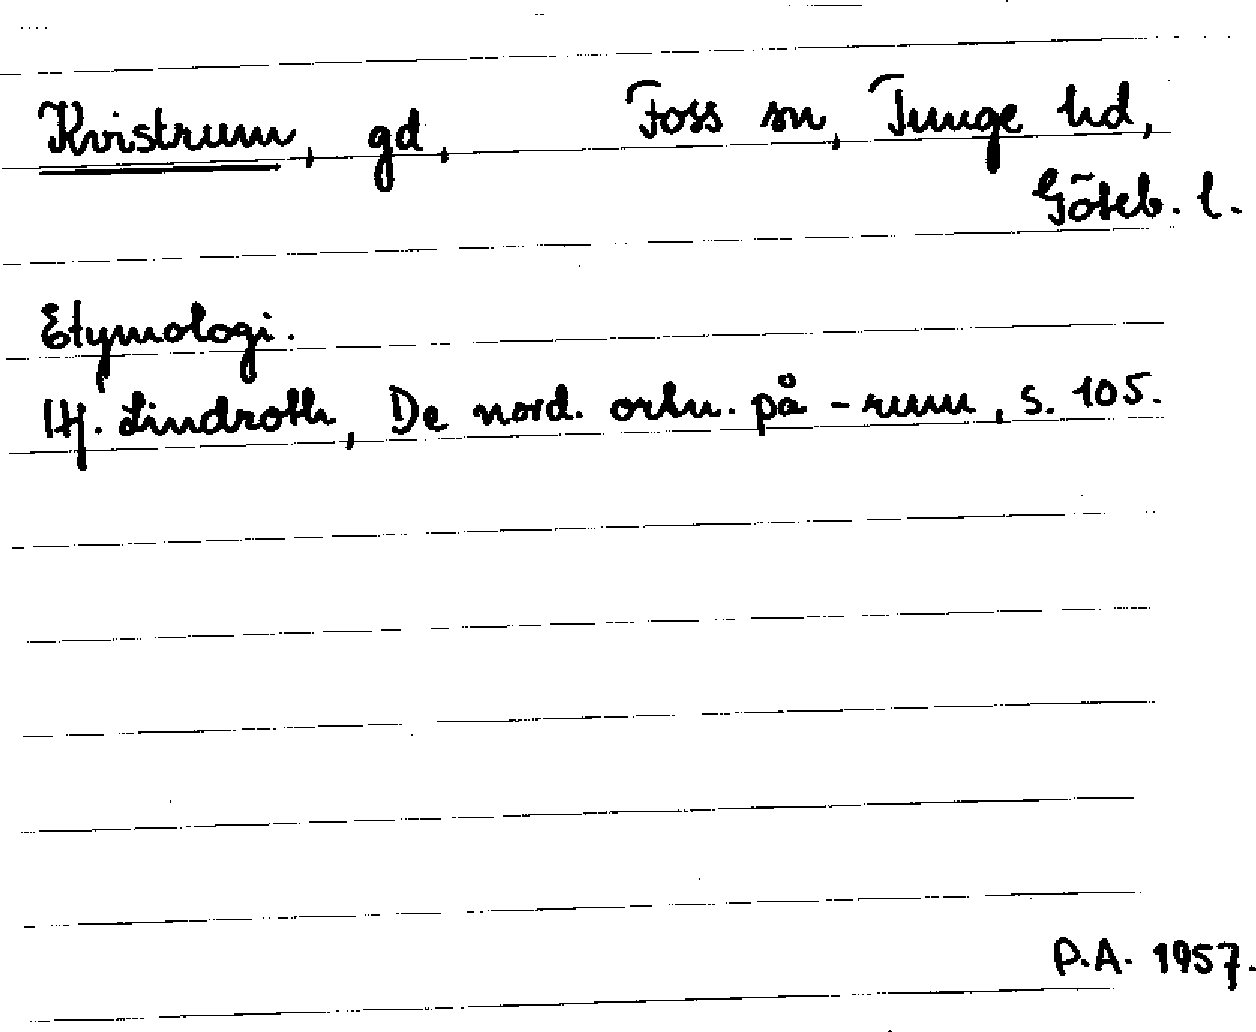 Kvistrum, gd, Foss sn, Tunge hd,
Göteb. l.
Etymologi.
Hj. Lindroth, De nord. ortn. på -rum, s. 105.
P.A. 1957.